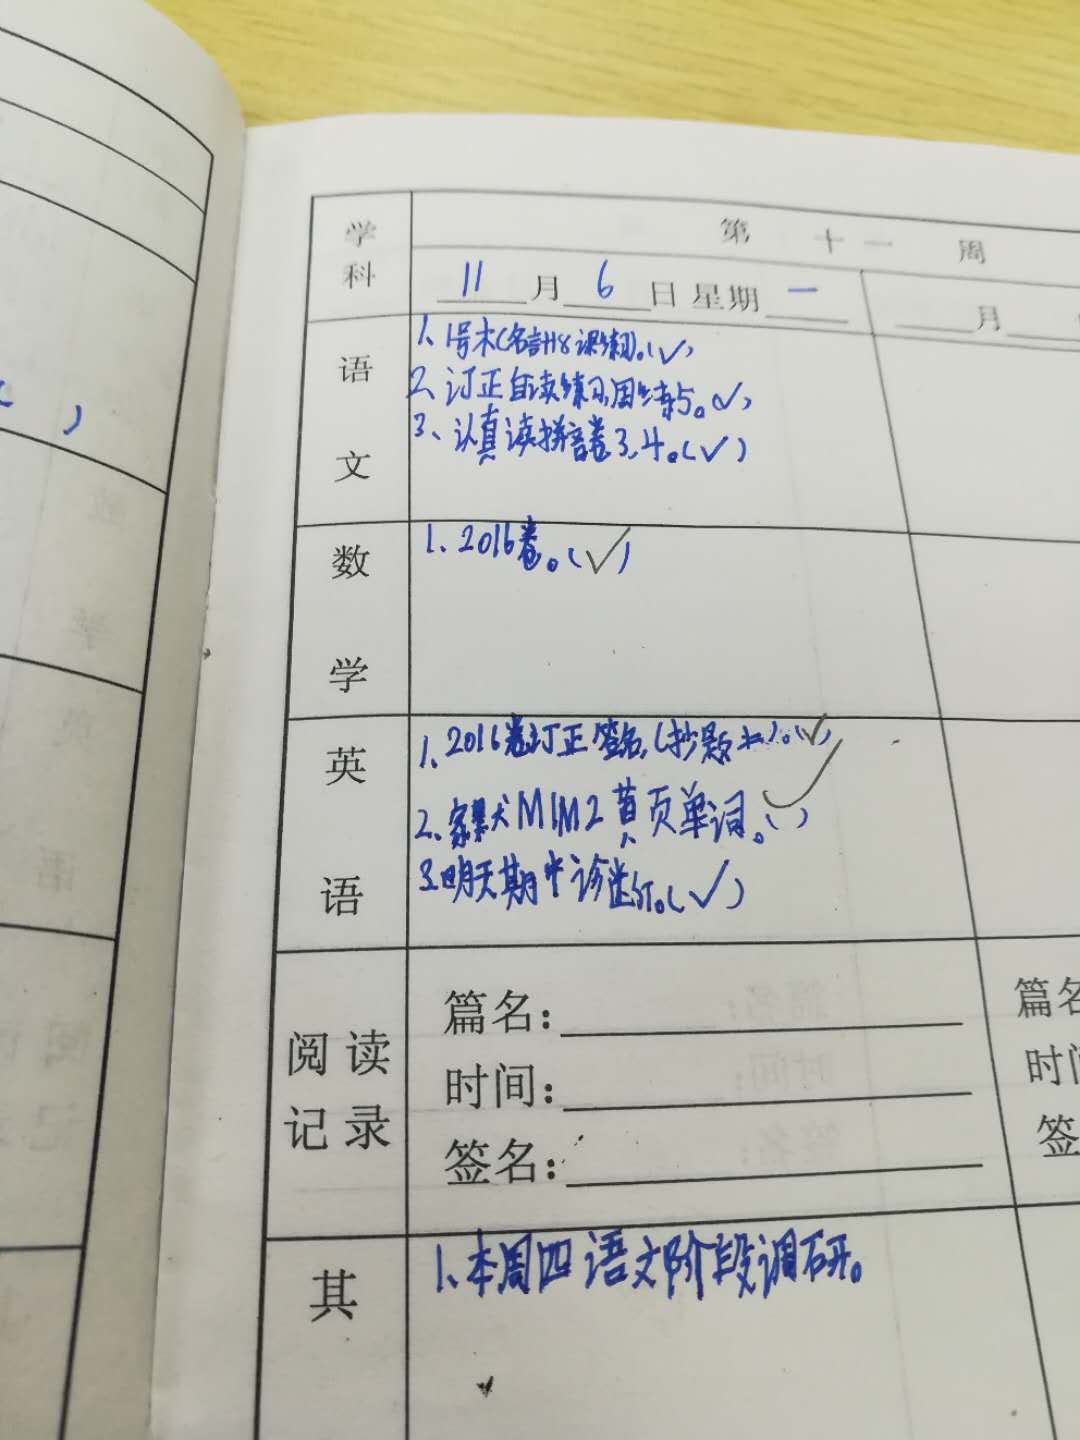 学科
第 十一 周
11月6日星期一
月
语文
1、1号本(名言+18课练习)。(✓)
2、订正自读练习,周练5。(✓)
3、认真读拼音卷3、4。(✓)
数学
1、2016卷。(✓)
英语
1、2016卷订正签名(抄题
2、家默M1M2黄页单词。( )
3.明天期中诊断。(✓)
阅读记录
篇名:
时间:
签名:
篇名
时间
签
其
1、本周四语文阶段调研。